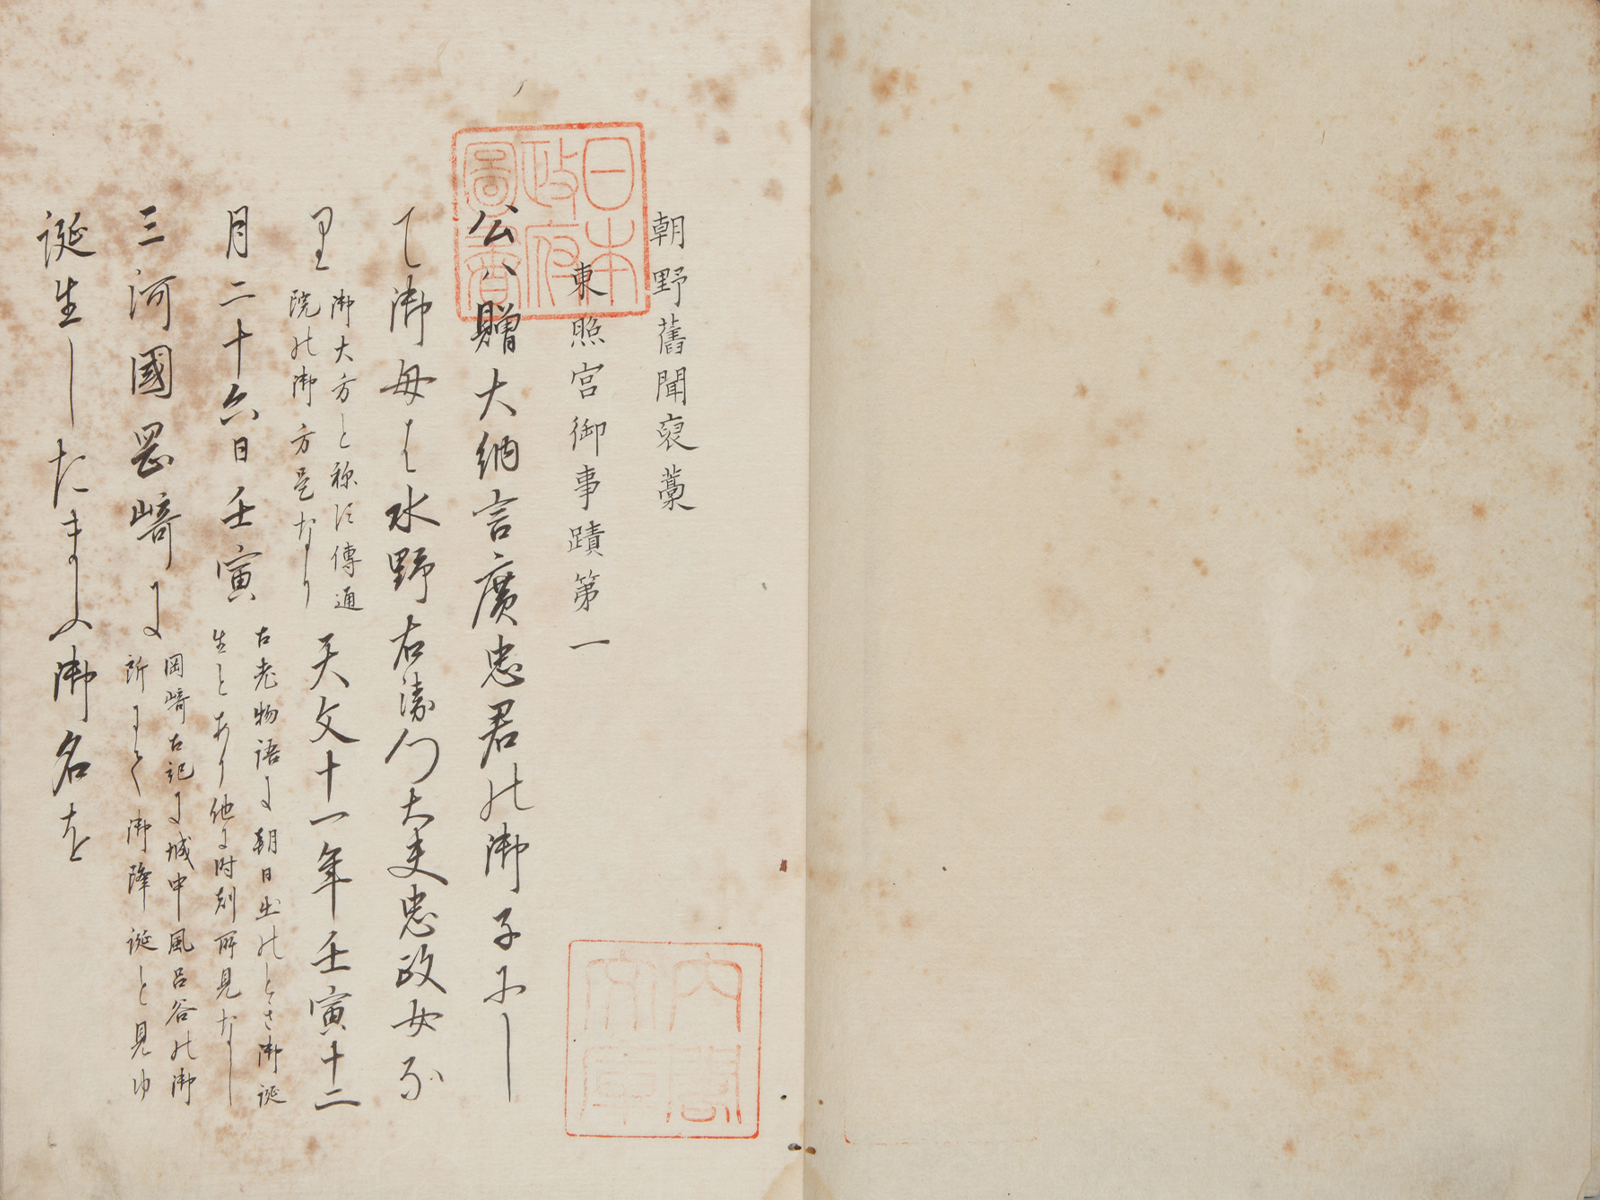 朝野舊聞裒藁
東照宮御事蹟第一
公ハ贈大納言廣忠君の御子にし
て御母は水野右衛門大夫忠政女な
り
御大方と稱す傳通
院の御方是なり
天文十一年壬寅十二
月二十六日壬寅
古老物語に朝日出のとき御誕
生とあり他に時刻所見なし
三河國岡﨑に
岡﨑古記に城中風呂谷の御
所にて御降誕と見ゆ
誕生したまふ御名を
日本
政府
圖書
内閣
文庫